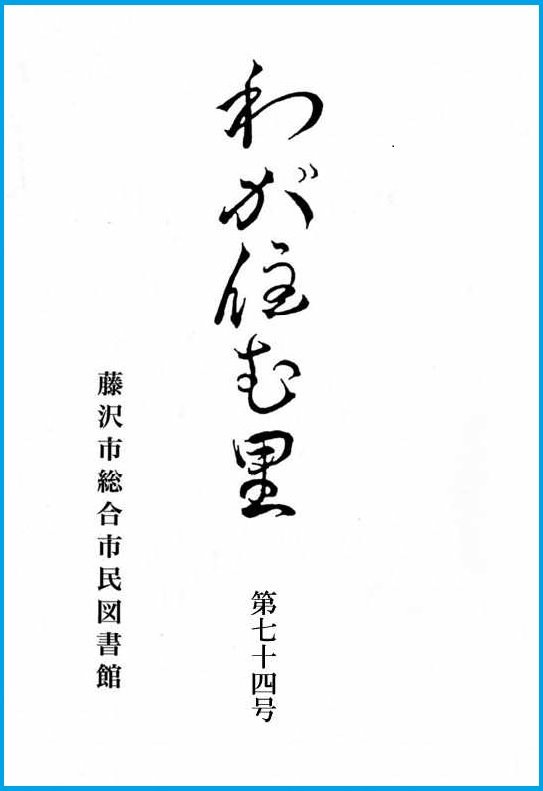 わが住む里
第七十四号
藤沢市総合市民図書館